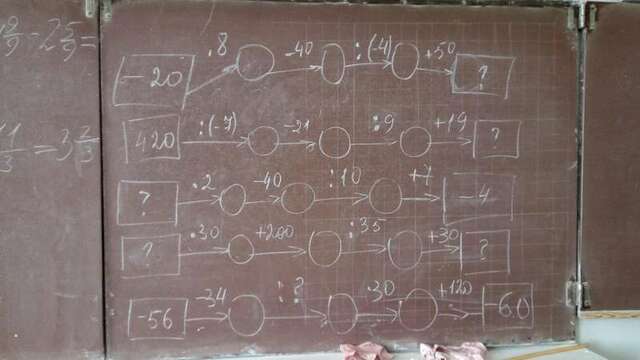 -2 5/9 =
11/3 = 3 2/3
-20 ·8 -40 :(-4) +50 ?
420 :(-7) -21 :9 +19 ?
? ·2 -40 :10 +7 -4
? ·30 +200 :35 +30 ?
-56 -34 :? ·30 +120 -60